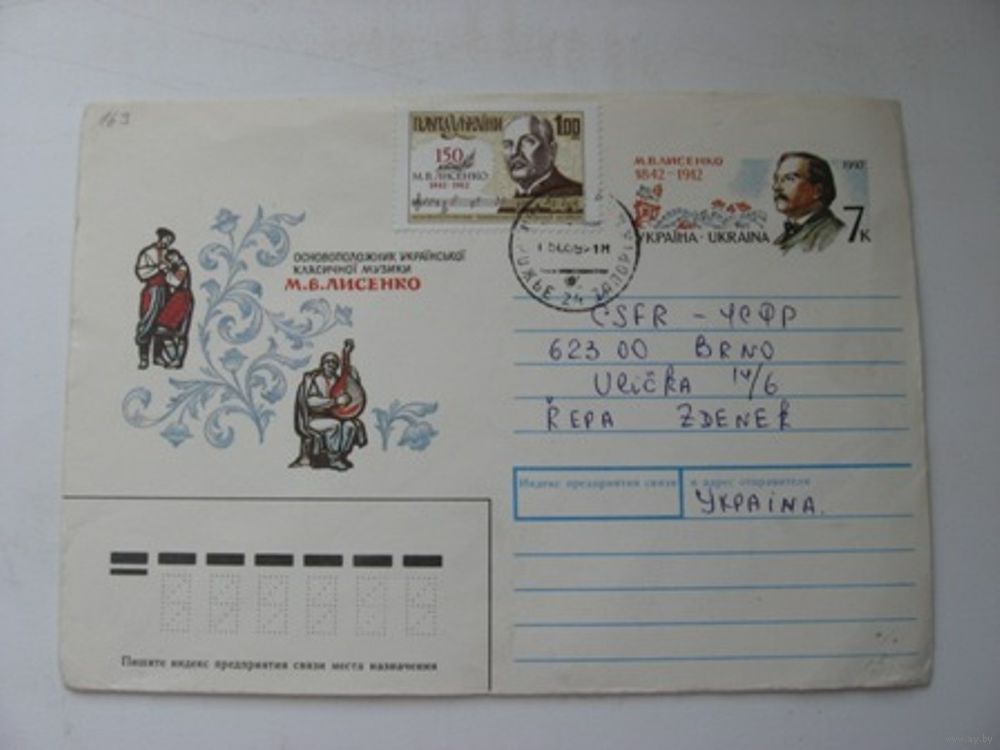 169
ПОШТА УКРАЇНИ 1.00
150
М.В. ЛИСЕНКО
1842-1912
М.В. ЛИСЕНКО
1842-1912
1992
УКРАЇНА · UKRAINA
7к
24
ОСНОВОПОЛОЖНИК УКРАЇНСЬКОЇ
КЛАСИЧНОЇ МУЗИКИ
М.В. ЛИСЕНКО
CSFR - ЧСФР
623 00 BRNO
Ulička 14/6
ŘEPA ZDENEK
Индекс предприятия связи и адрес отправителя
Україна.
Пишите индекс предприятия связи места назначения
www.ay.by